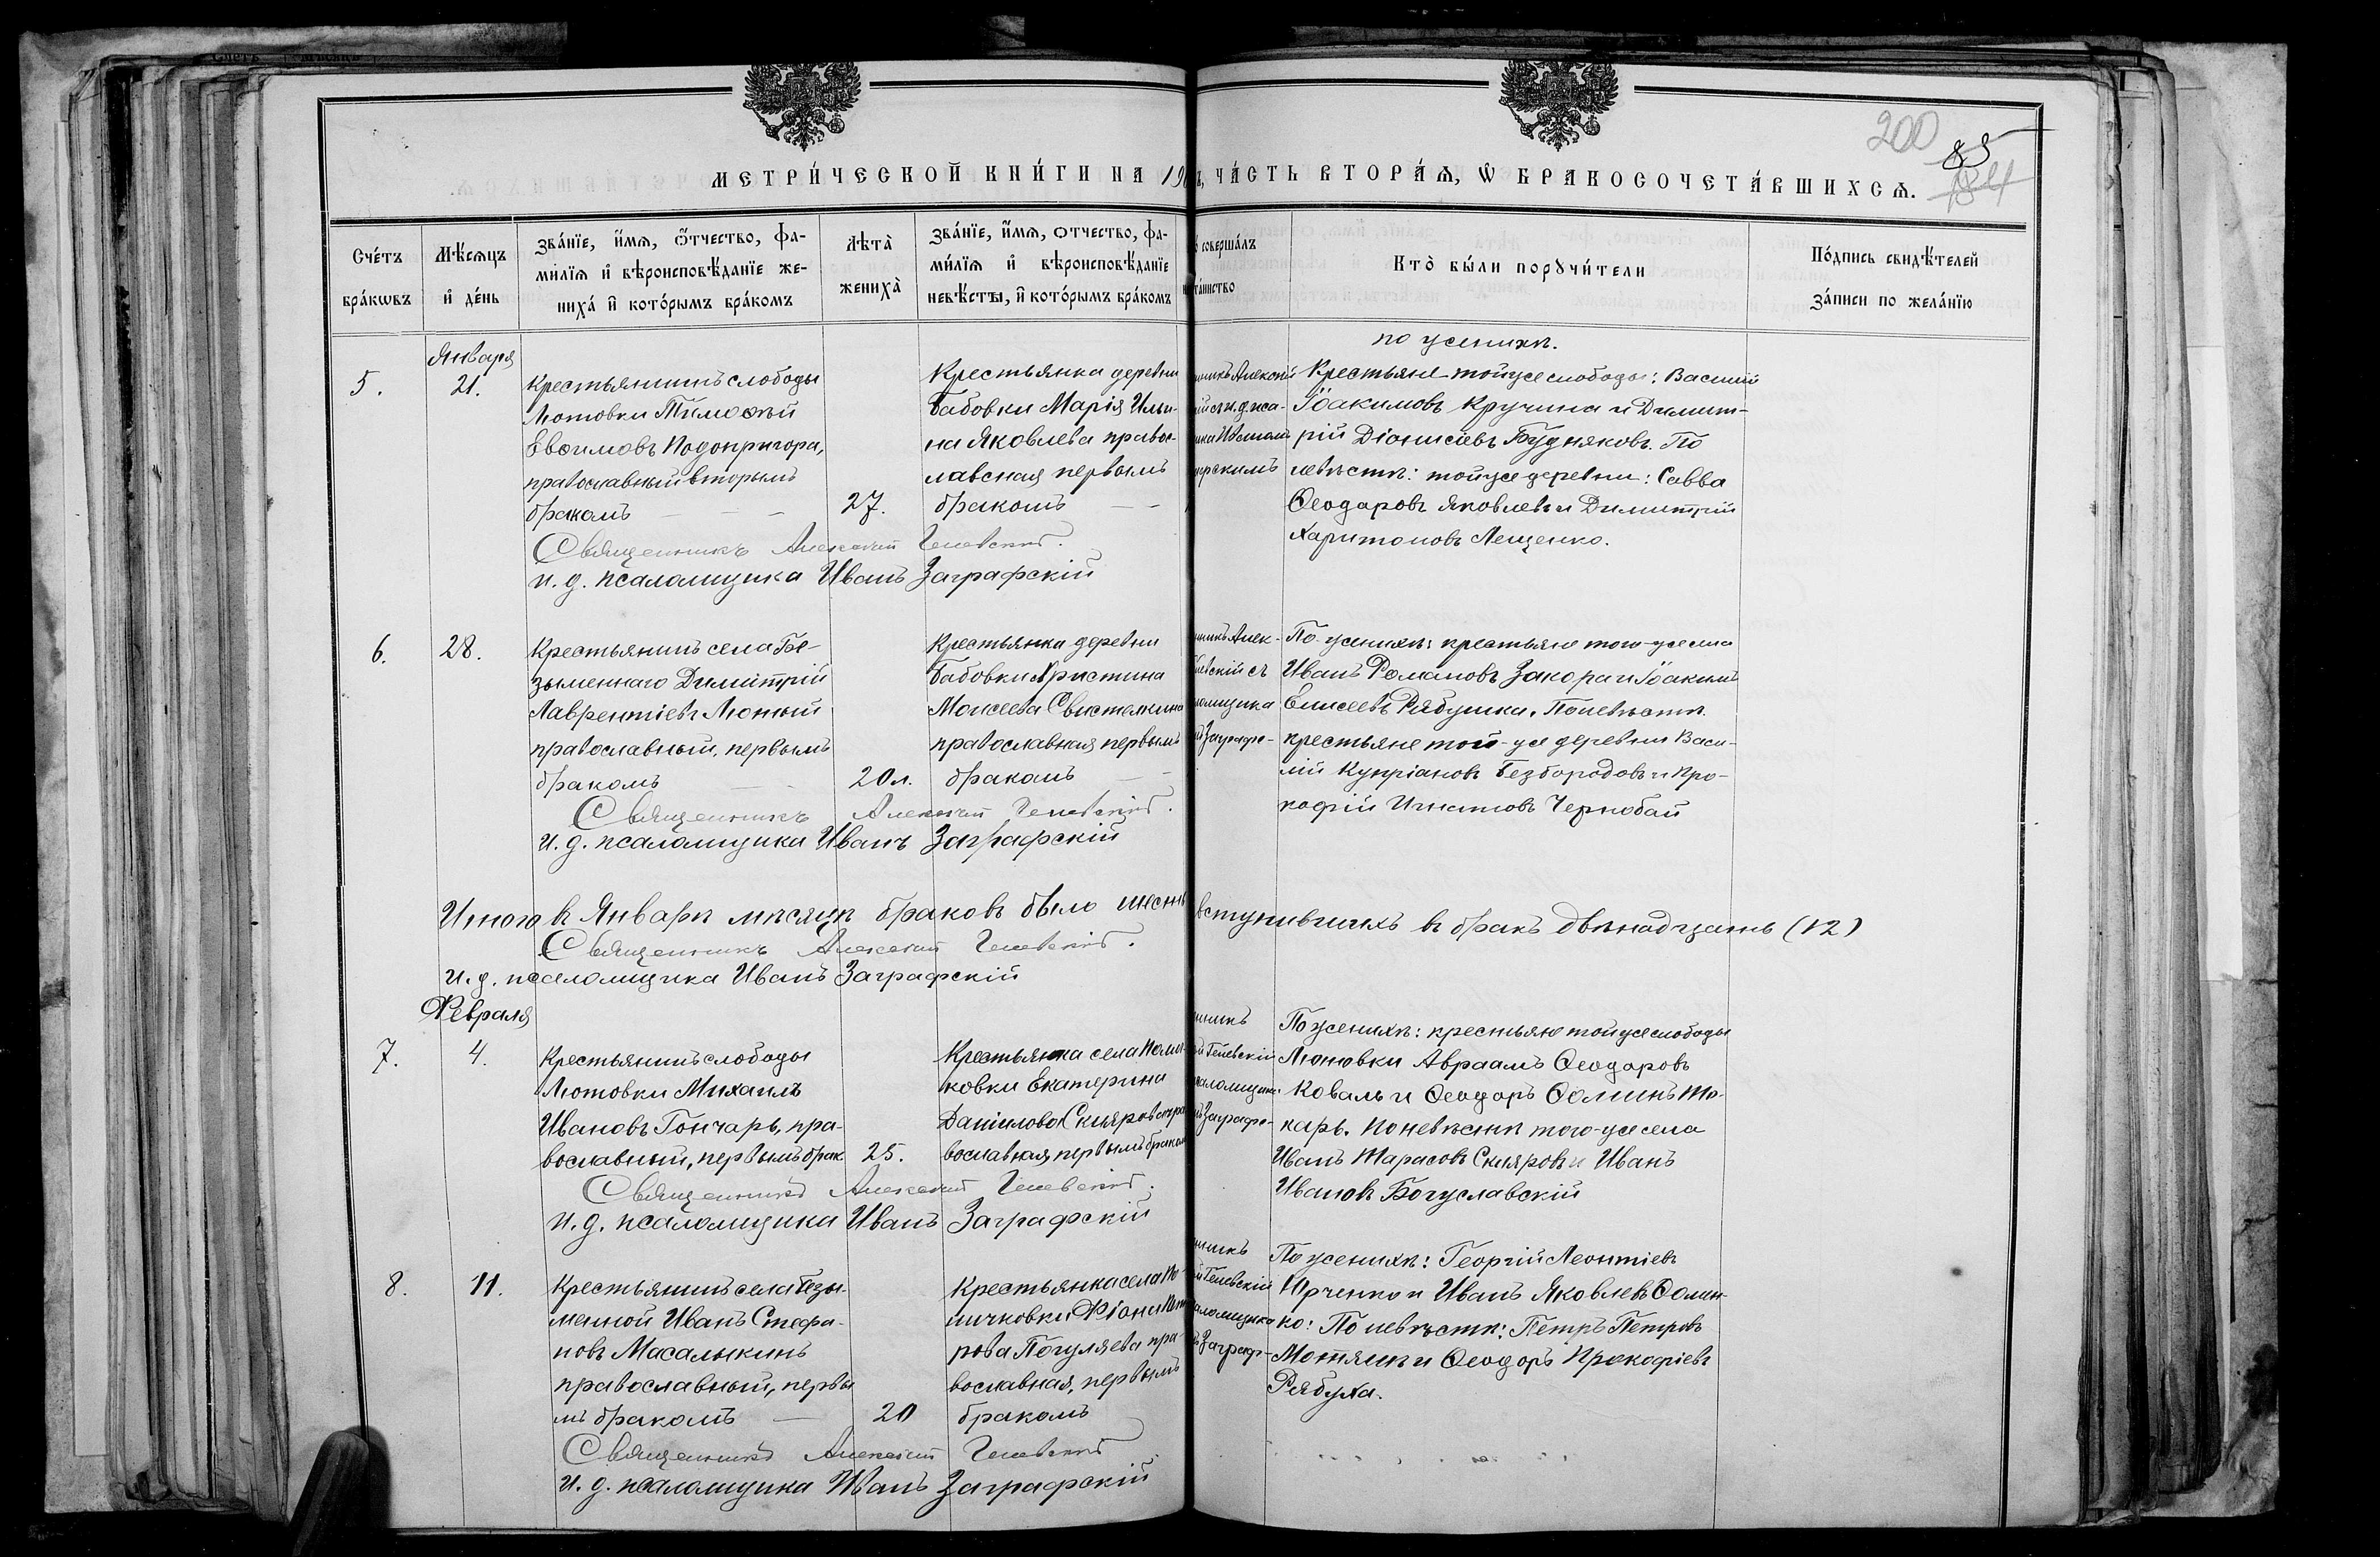 200
85
184
МЕТРИ́ЧЕСКОЙ КНИ́ГИ НА 19
ЧА́СТЬ ВТОРА́Ѧ, Ѡ҆ БРАКОСОЧЕТА́ВШИХСѦ.
Сче́тъ бра́кѡвъ
Мѣ́сѧцъ и҆ де́нь
Зва́нїе, и҆́мѧ, ѻ҆́тчество, фа-
ми́лїѧ и҆ вѣроисповѣ́данїе же-
ниха́ и҆ кото́рымъ бра́комъ
Лѣта̀ жениха̀
Зва́нїе, и҆́мѧ, ѻ҆́тчество, фа-
ми́лїѧ и҆ вѣроисповѣ́данїе
невѣ́сты, и҆ кото́рымъ бра́комъ
соверша́лъ
та́инство
Кто̀ бы́ли порꙋчи́тели
По́дпись свидѣ́телей
за́писи по жела́нїю
5.
Января
21.
Крестьянинъ слободы
Лютовки Тимоѳей
Евѳимовъ Подопригора,
православный вторымъ
бракомъ
27.
Крестьянка деревни
Бабовки Марія Ильи-
на Яковлева правос-
лавная первымъ
бракомъ
никъ Алексѣй
ій съ и.д. пса-
ика Иваномъ
фскимъ
по женихѣ.
Крестьяне той же слободы: Василій
Іоакимовъ Кручина и Димит-
рій Діонисіевъ Будняковъ. По
невѣстѣ: той же деревни: Савва
Ѳеодоровъ Яковлевъ и Димитрій
Харитоновъ Лещенко.
Священникъ Алексѣй Гелевскій.
и. д. псаломщика Иванъ Заграфскій
6.
28.
Крестьянинъ села Бе-
зыменнаго Димитрій
Лаврентіевъ Лютый
православный, первымъ
бракомъ
20 л.
Крестьянка деревни
Бабовки Христина
Моисеева Свистелкина
православная первымъ
бракомъ
никъ Алек-
левскій съ
ломщика
й Заграф-
По женихѣ: крестьяне того-же села
Иванъ Романовъ Закора и Іоакимъ
Елисеевъ Рябушка. По невѣстѣ.
крестьяне той-же деревни Васи-
лій Купріановъ Безбородовъ и Про-
кофій Игнатовъ Чернобай
Священникъ Алексѣй Гелевскій.
и. д. псаломщика Иванъ Заграфскій
Итого въ Январѣ мѣсяцѣ браковъ было шесть
вступившихъ въ бракъ двѣнадцать (12)
Священникъ Алексѣй Гелевскій.
и. д. псаломщика Иванъ Заграфскій
Февраля
7.
4.
Крестьянинъ слободы
Лютовки Михаилъ
Ивановъ Гончарь, пра-
вославный, первымъ брак
25.
Крестьянка села
ковки Екатерина
Данилова Склярова пра
вославная, первымъ бракомъ
никъ
й Гелевскій
саломщика
Заграф-
По женихѣ: крестьяне той же слободы
Лютовки Авраамъ Ѳеодоровъ
Коваль и Ѳеодоръ Ѳоминъ То-
карь. По невѣстѣ того-же села
Иванъ Тарасовъ Скляровъ и Иванъ
Ивановъ Богуславскій
Священникъ Алексѣй Гелевскій.
и. д. псаломщика Иванъ Заграфскій
8.
11.
Крестьянинъ села Безы-
менной Иванъ Стефа-
новъ Масалыкинъ
православный, первы
мъ бракомъ
20
Крестьянка села По-
ничковки
рова Погуляева пра-
вославная, первымъ
бракомъ
никъ
й Гелевскій
аломщика
Заграф-
По женихѣ: Георгій Леонтіевъ
Юрченко и Иванъ Яковлевъ Ѳомен-
ко: По невѣстѣ: Петръ Петровъ
Мотякъ и Ѳеодоръ Прокофіевъ
Рябуха.
Священникъ Алексѣй Гелевскій
и. д. псаломщика Иванъ Заграфскій